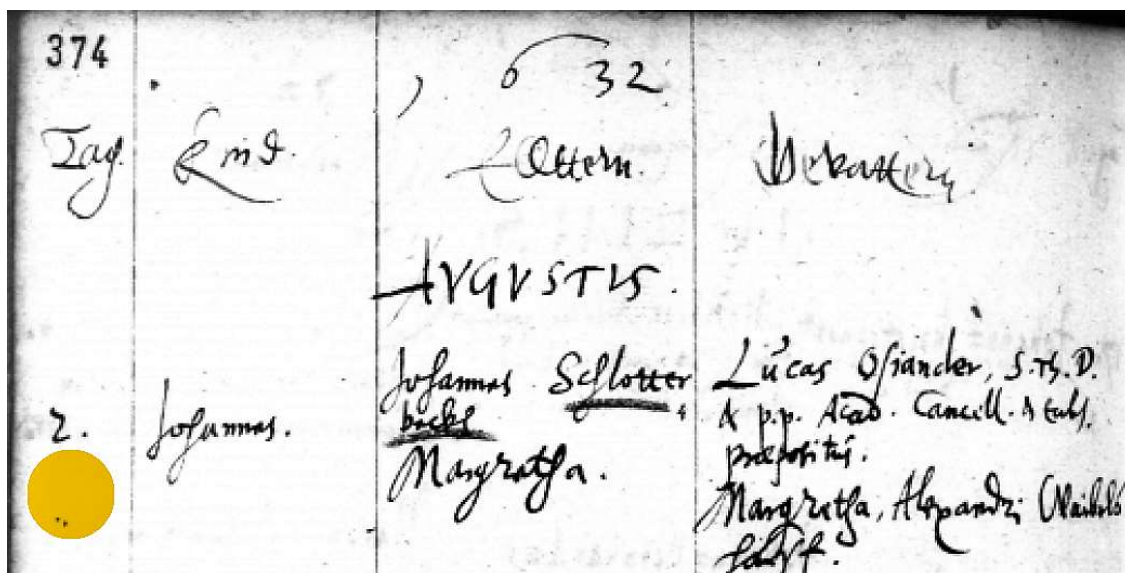 374
1632
Tag. Kind. Elttern. Gevattern
AVGVSTVS.
2. Johannes. Johannes Schlotter
beckh
Margretha.
Lucas Osiander, S. Th. D.
& p.p. Acad. Cancell. &
præpositus.
Margretha, Alexandri